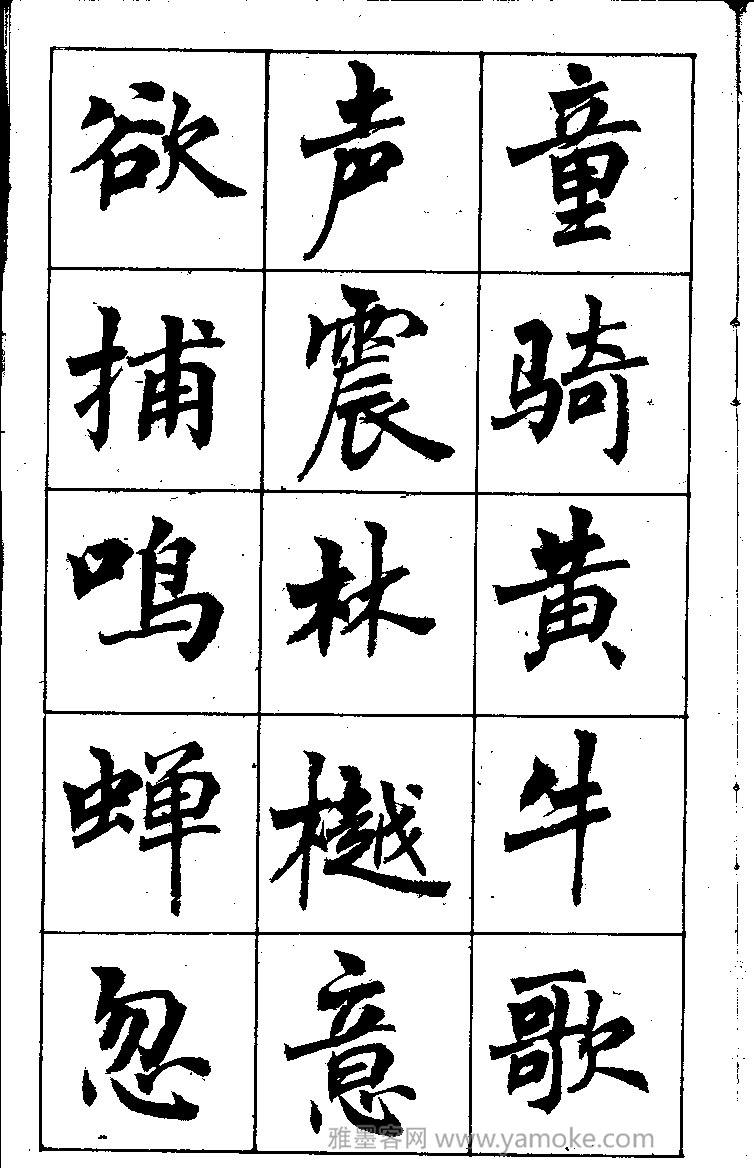 童骑黄牛歌
声震林樾意
欲捕鸣蝉忽
雅墨客网 www.yamoke.com